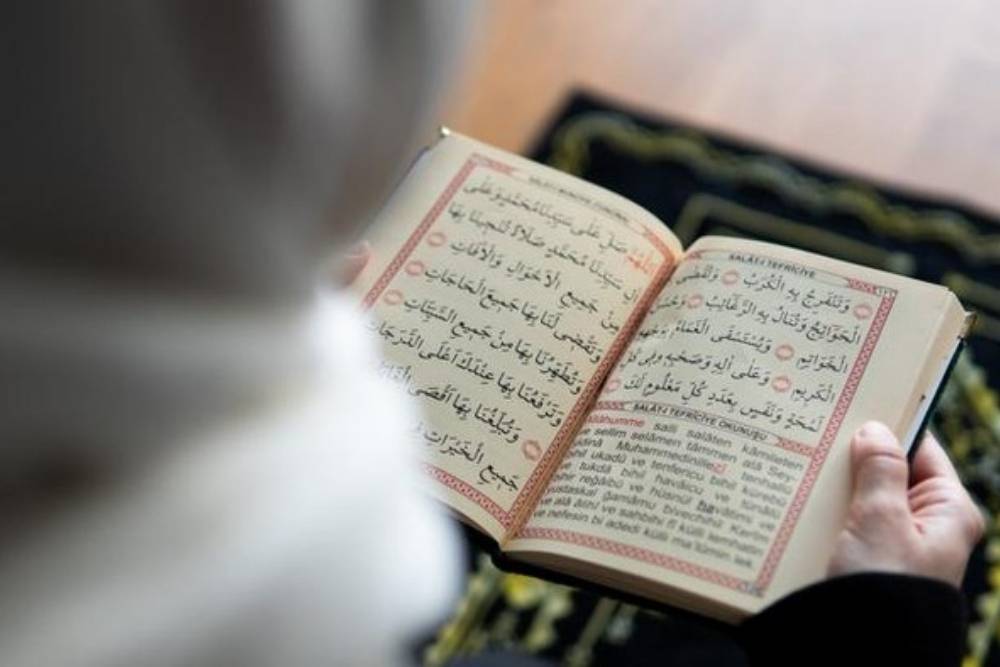 SALÂT-I TEFRÎCİYE
وَتَنْفَرِجُ بِهِ الْكُرَبُ وَتُقْضَى
الْحَوَائِجُ وَتُنَالُ بِهِ الرَّغَائِبُ وَحُسْنُ
الْخَوَاتِمِ وَيُسْتَسْقَى الْغَمَامُ بِوَجْهِهِ
الْكَرِيمِ وَعَلَى اٰلِهِ وَصَحْبِهِ فِى كُلِّ
لَمْحَةٍ وَنَفَسٍ بِعَدَدِ كُلِّ مَعْلُومٍ لَكَ
SALÂT-I TEFRÎCİYE OKUNUŞU
Allâhumme salli salâten kâmileten
ve sellim selâmen tâmmen alâ Sey-
yidinâ Muhammedinillezî tenhallü
bihil ukadü ve tenfericu bihil kürebü
ve tukdâ bihil havâicü ve tünâlü
bihir reğâibü ve hüsnül havâtimi ve
yustaskal ğamâmu bivechihil Kerîm
ve alâ âlihî ve sahbihî fî külli lemhatin
ve nefesin bi adedi külli ma'lûmin lek.
صَلِّ عَلَى سَيِّدِنَا مُحَمَّدٍ وَعَلَى
سَيِّدِنَا مُحَمَّدٍ صَلَاةً تُنْجِينَا بِهَا
مِنْ جَمِيعِ الْاَهْوَالِ وَالْاٰفَاتِ
وَتَقْضِى لَنَا بِهَا جَمِيعَ الْحَاجَاتِ
وَتُطَهِّرُنَا بِهَا مِنْ جَمِيعِ السَّيِّئَاتِ
وَتَرْفَعُنَا بِهَا عِنْدَكَ اَعْلَى الدَّرَجَاتِ
وَتُبَلِّغُنَا بِهَا اَقْصَى
جَمِيعِ الْخَيْرَاتِ